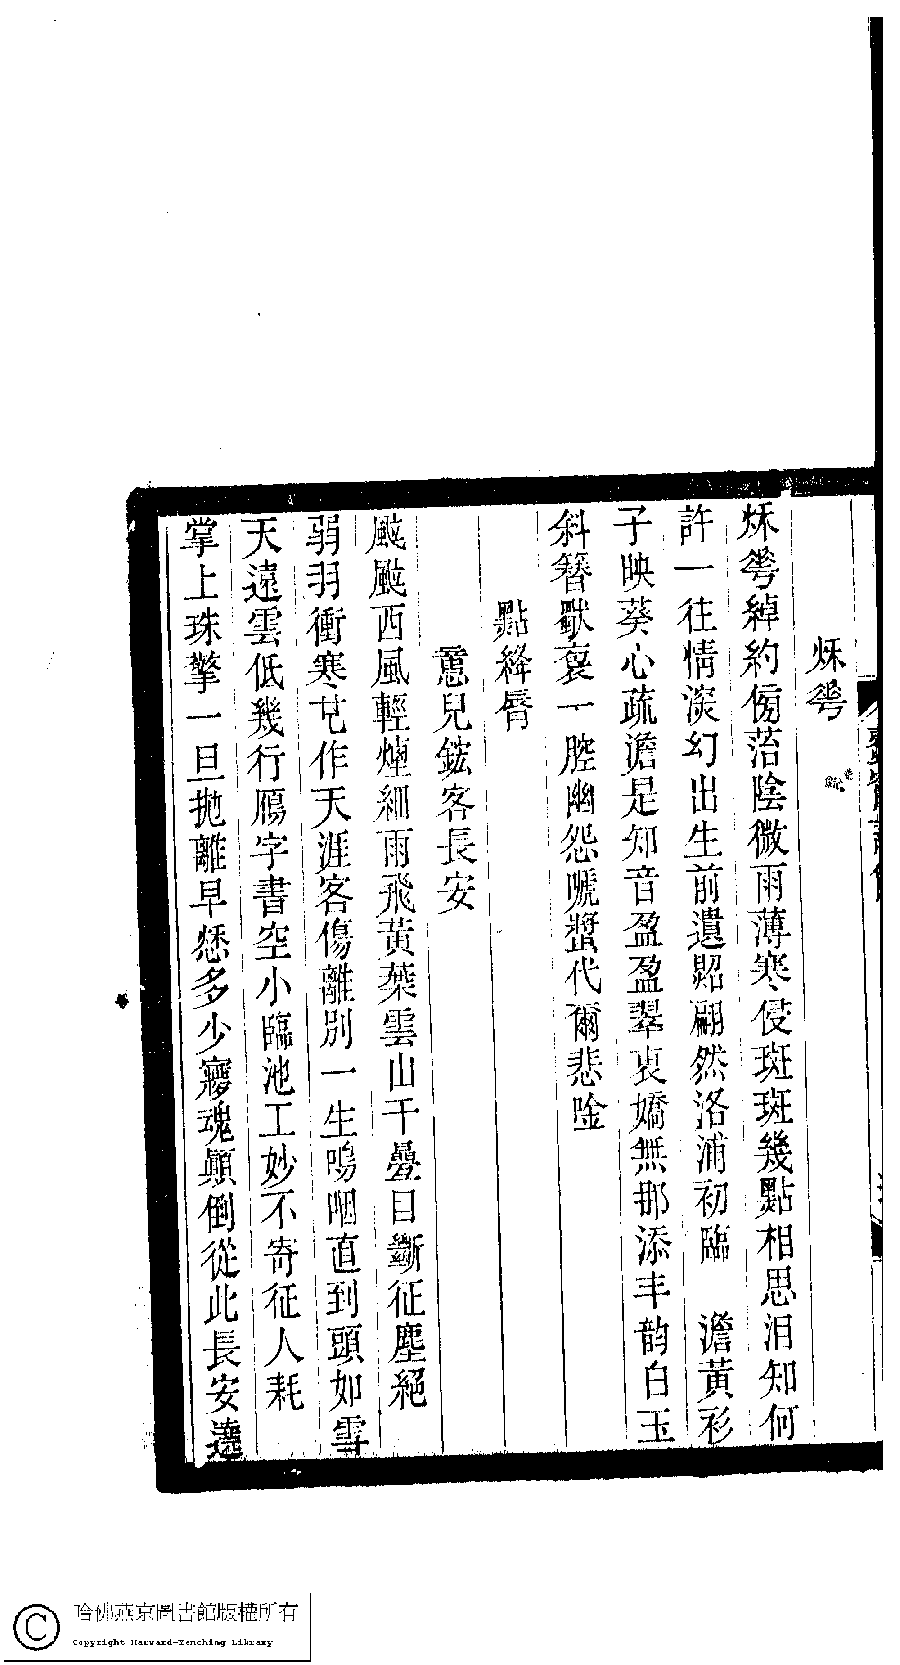 秌蕐
秌蕐綽約傍苔陰微雨薄寒侵斑斑幾點相思泪知何
許一往情深幻出生前遺照翩然洛浦初臨　澹黃衫
子映葵心疏澹是知音盈盈翠衷嬌無那添丰韵白玉
斜簪獸裒一腔幽怨嗁螿代爾悲唫
點絳脣
蕙兒鋐客長安
颰颰西風輕煙細雨飛黃葉雲山千疊目斷征塵絕
弱羽衝寒芲作天涯客傷離別一生嗚咽直到頭如雪
天遠雲低幾行鴈字書空小臨池工妙不寄征人耗
掌上珠擎一旦拋離早愁多少寱魂顛倒從此長安遶
哈佛燕京圖書館版權所有
Copyright Harvard-Yenching Library